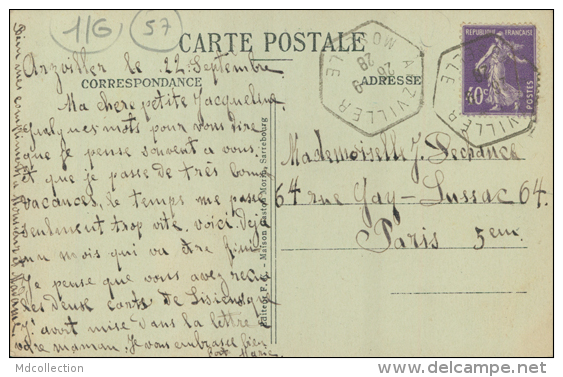 116
57
CARTE POSTALE
Arzviller le 22 Septembre
CORRESPONDANCE
ADRESSE
Ma chere petite Jacqueline
Quelques mots pour vous dire
que je pense souvent a vous
et que je passe de très bonne
vacances, le temps me passe
seulement trop vite. voici deja
un mois qui va être fini
Je pense que vous avez recu
les deux carts de
J' avort mise dans la lettre a
votre maman. Je vous embrasse bien
fort Marie
Mademoiselle J.
64 rue Gay-Lussac 64.
Paris 5em
Editeur F. C. - Maison Gaston Morin, Sarrebourg
RÉPUBLIQUE FRANÇAISE
40c
POSTES
ARZVILLER
MOSELLE
28
Mdcollection
http://www.delcampe.net